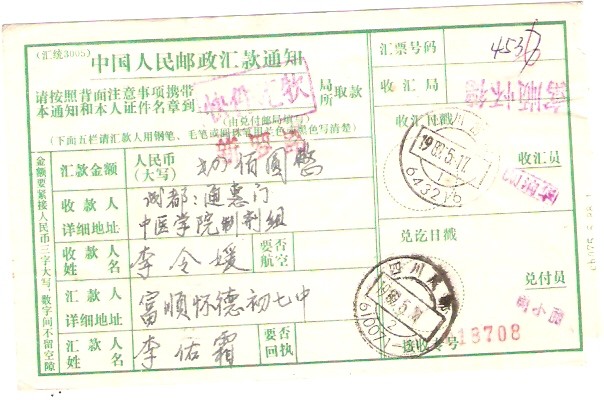 (汇综3005)
中国人民邮政汇款通知
请按照背面注意事项携带
本通知和本人证件名章到
局
所取款
(由兑付邮局填写)
(下面五栏请汇款人用钢笔、毛笔或圆珠笔用蓝色或黑色写清楚)
金额要紧接人民币三字大写,数字间不留空障
汇款金额
人民币
(大写)
佰圆整
收款人
详细地址
成都:通惠门
中医学院制剂组
收款人
姓名
李令媛
要否
航空
汇款人
详细地址
富顺怀德初七中
汇款人
姓名
李佑霜
要否
回执
汇票号码
453
收汇局
富顺怀德
收汇日戳
四川
1987.5.17
643216
收汇员
兑讫日戳
四川成都
610071
兑付员
接收专号
13708